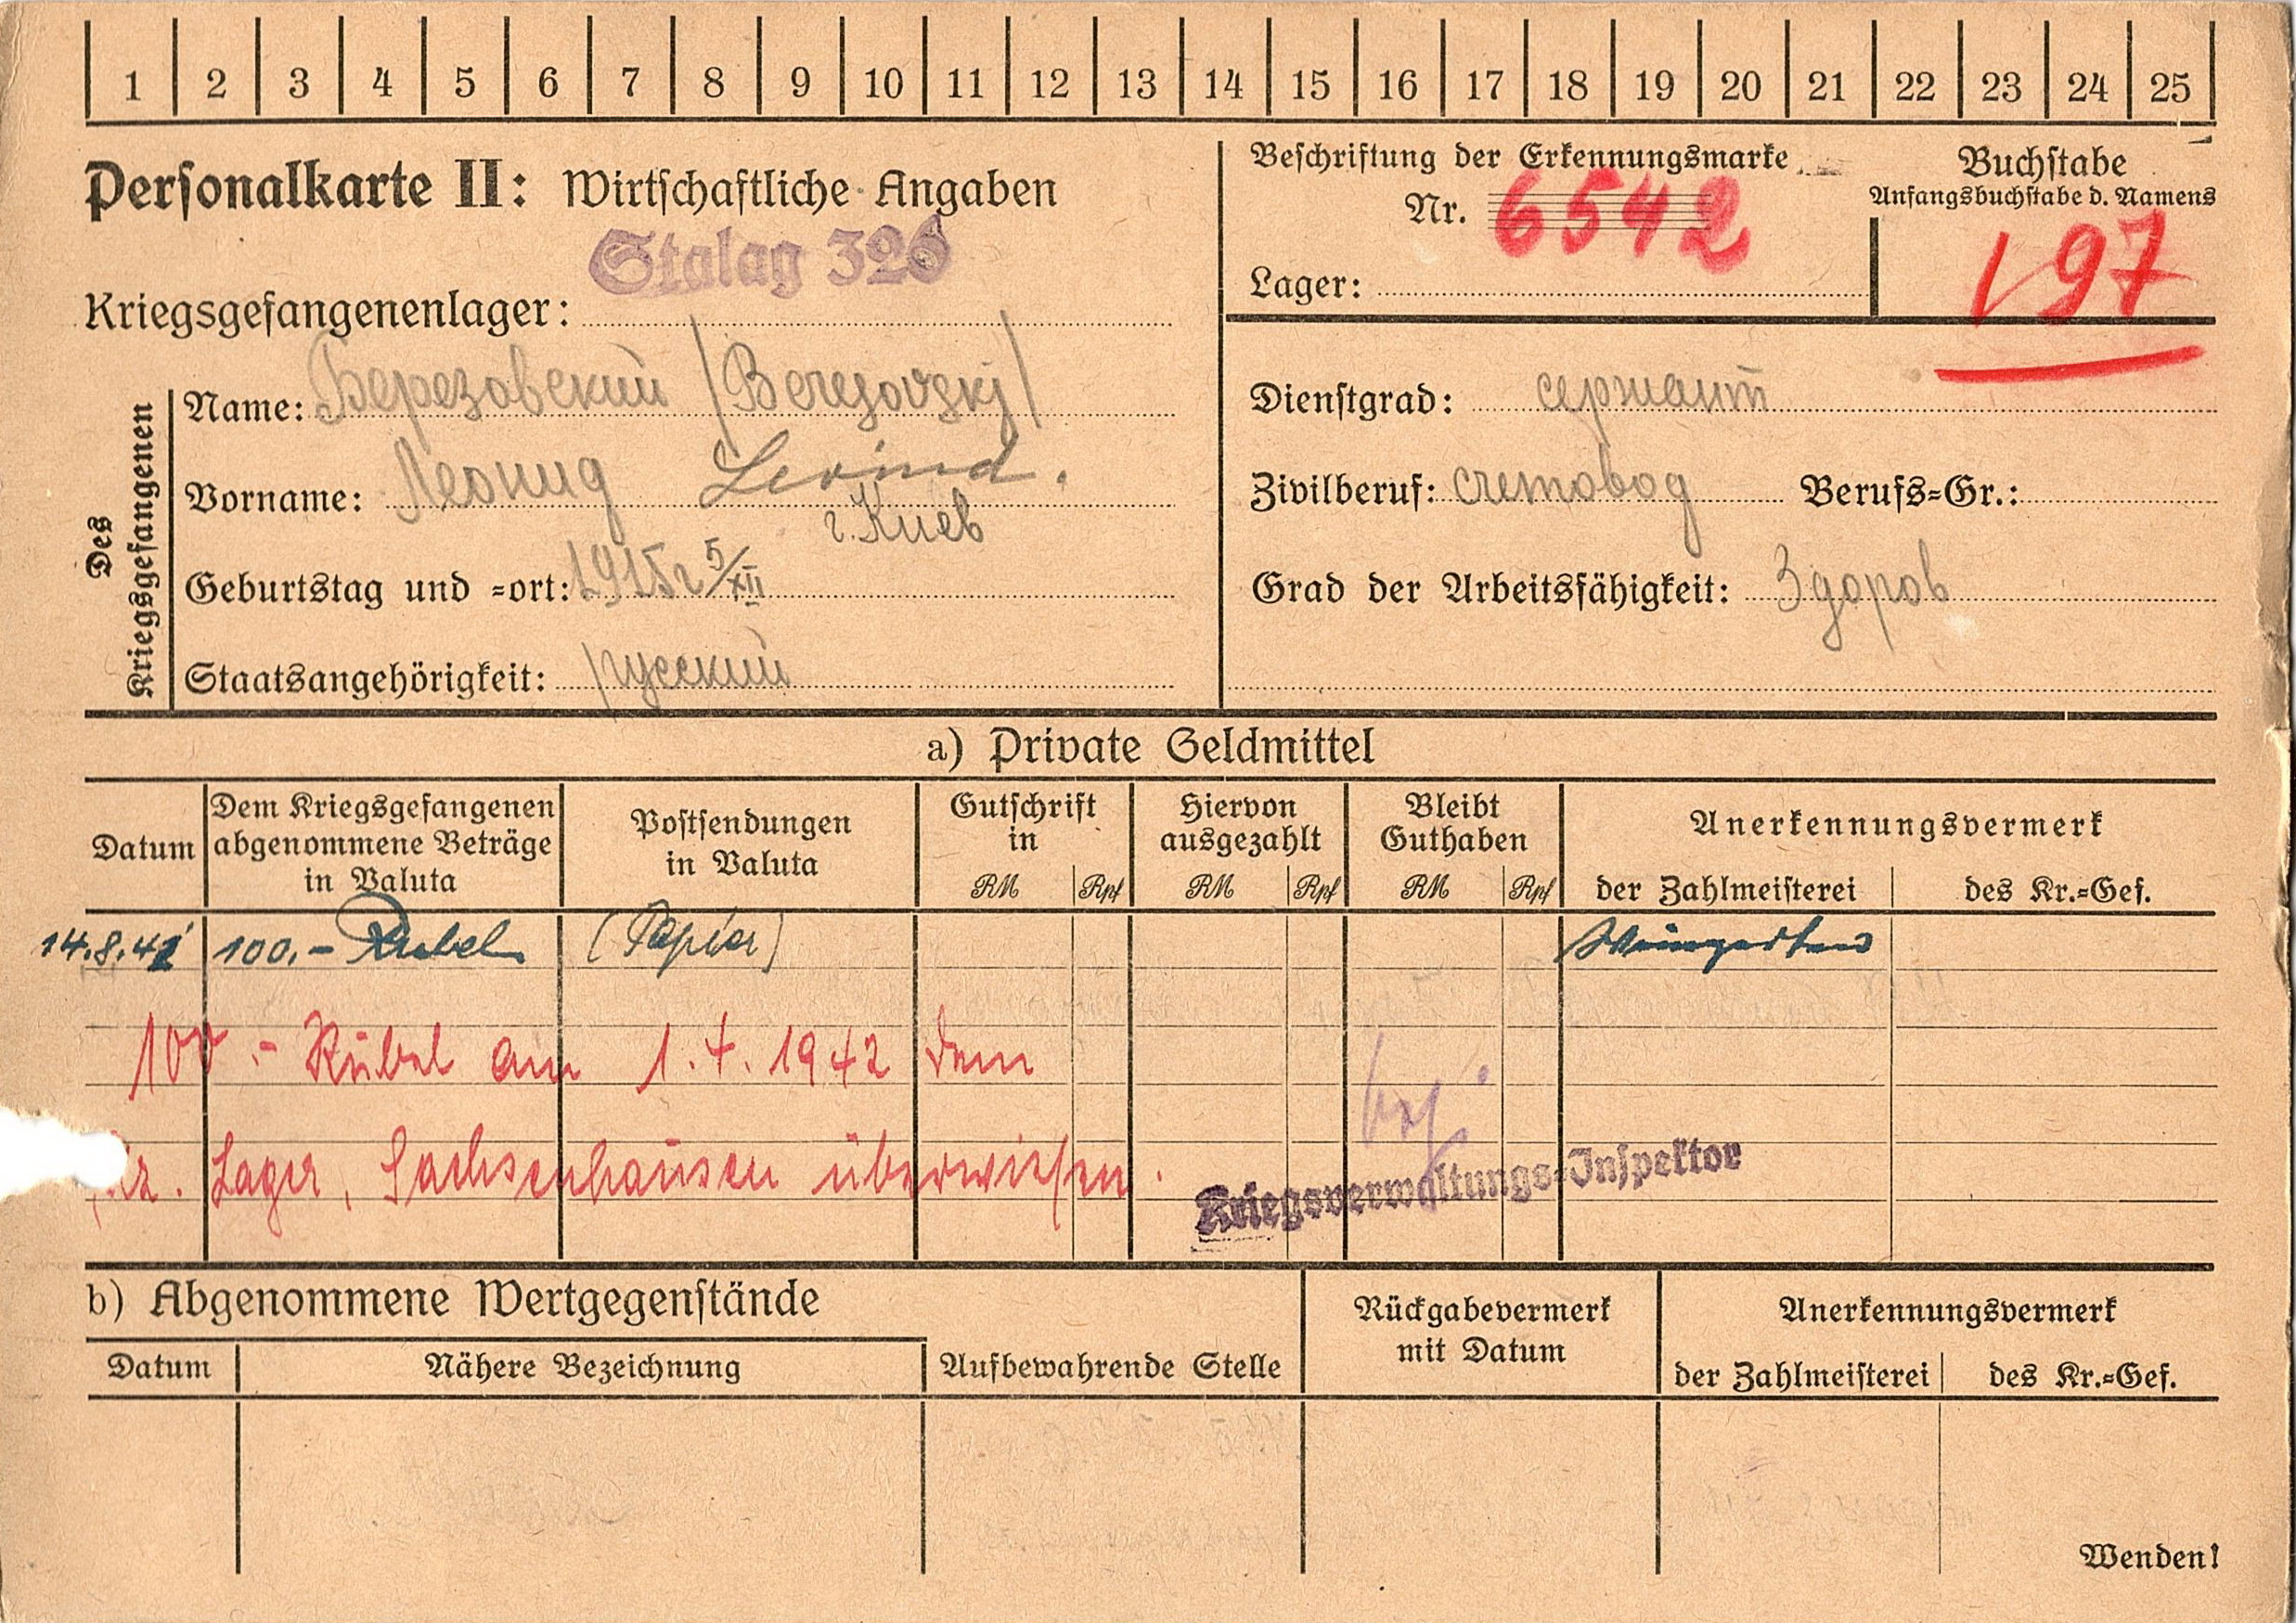 1 2 3 4 5 6 7 8 9 10 11 12 13 14 15 16 17 18 19 20 21 22 23 24 25
Personalkarte II: Wirtschaftliche Angaben
Stalag 326
Kriegsgefangenenlager:
Beschriftung der Erkennungsmarke
Nr. 6542
Lager:
Buchstabe
Anfangsbuchstabe d. Namens
97
Des Kriegsgefangenen
Name: Березовский /Beresovskj/
Vorname: Леонид Leonid.
г. Киев
Geburtstag und =ort: 1915г 5/XII
Staatsangehörigkeit: русский
Dienstgrad: сержант
Zivilberuf: счетовод Berufs=Gr.:
Grad der Arbeitsfähigkeit: Здоров
a) Private Geldmittel
Datum
Dem Kriegsgefangenen
abgenommene Beträge
in Valuta
Postsendungen
in Valuta
Gutschrift
in
RM Rpf
Hiervon
ausgezahlt
RM Rpf
Bleibt
Guthaben
RM Rpf
Anerkennungsvermerk
der Zahlmeisterei des Kr.=Gef.
14.8.41 100.- Rubel (Papier)
100.- Rubel am 1.4.1942 dem
Lager, Sachsenhausen überwiesen.
Kriegsverwaltungs-Inspektor
b) Abgenommene Wertgegenstände
Datum Nähere Bezeichnung Aufbewahrende Stelle
Rückgabevermerk
mit Datum
Anerkennungsvermerk
der Zahlmeisterei des Kr.=Gef.
Wenden!